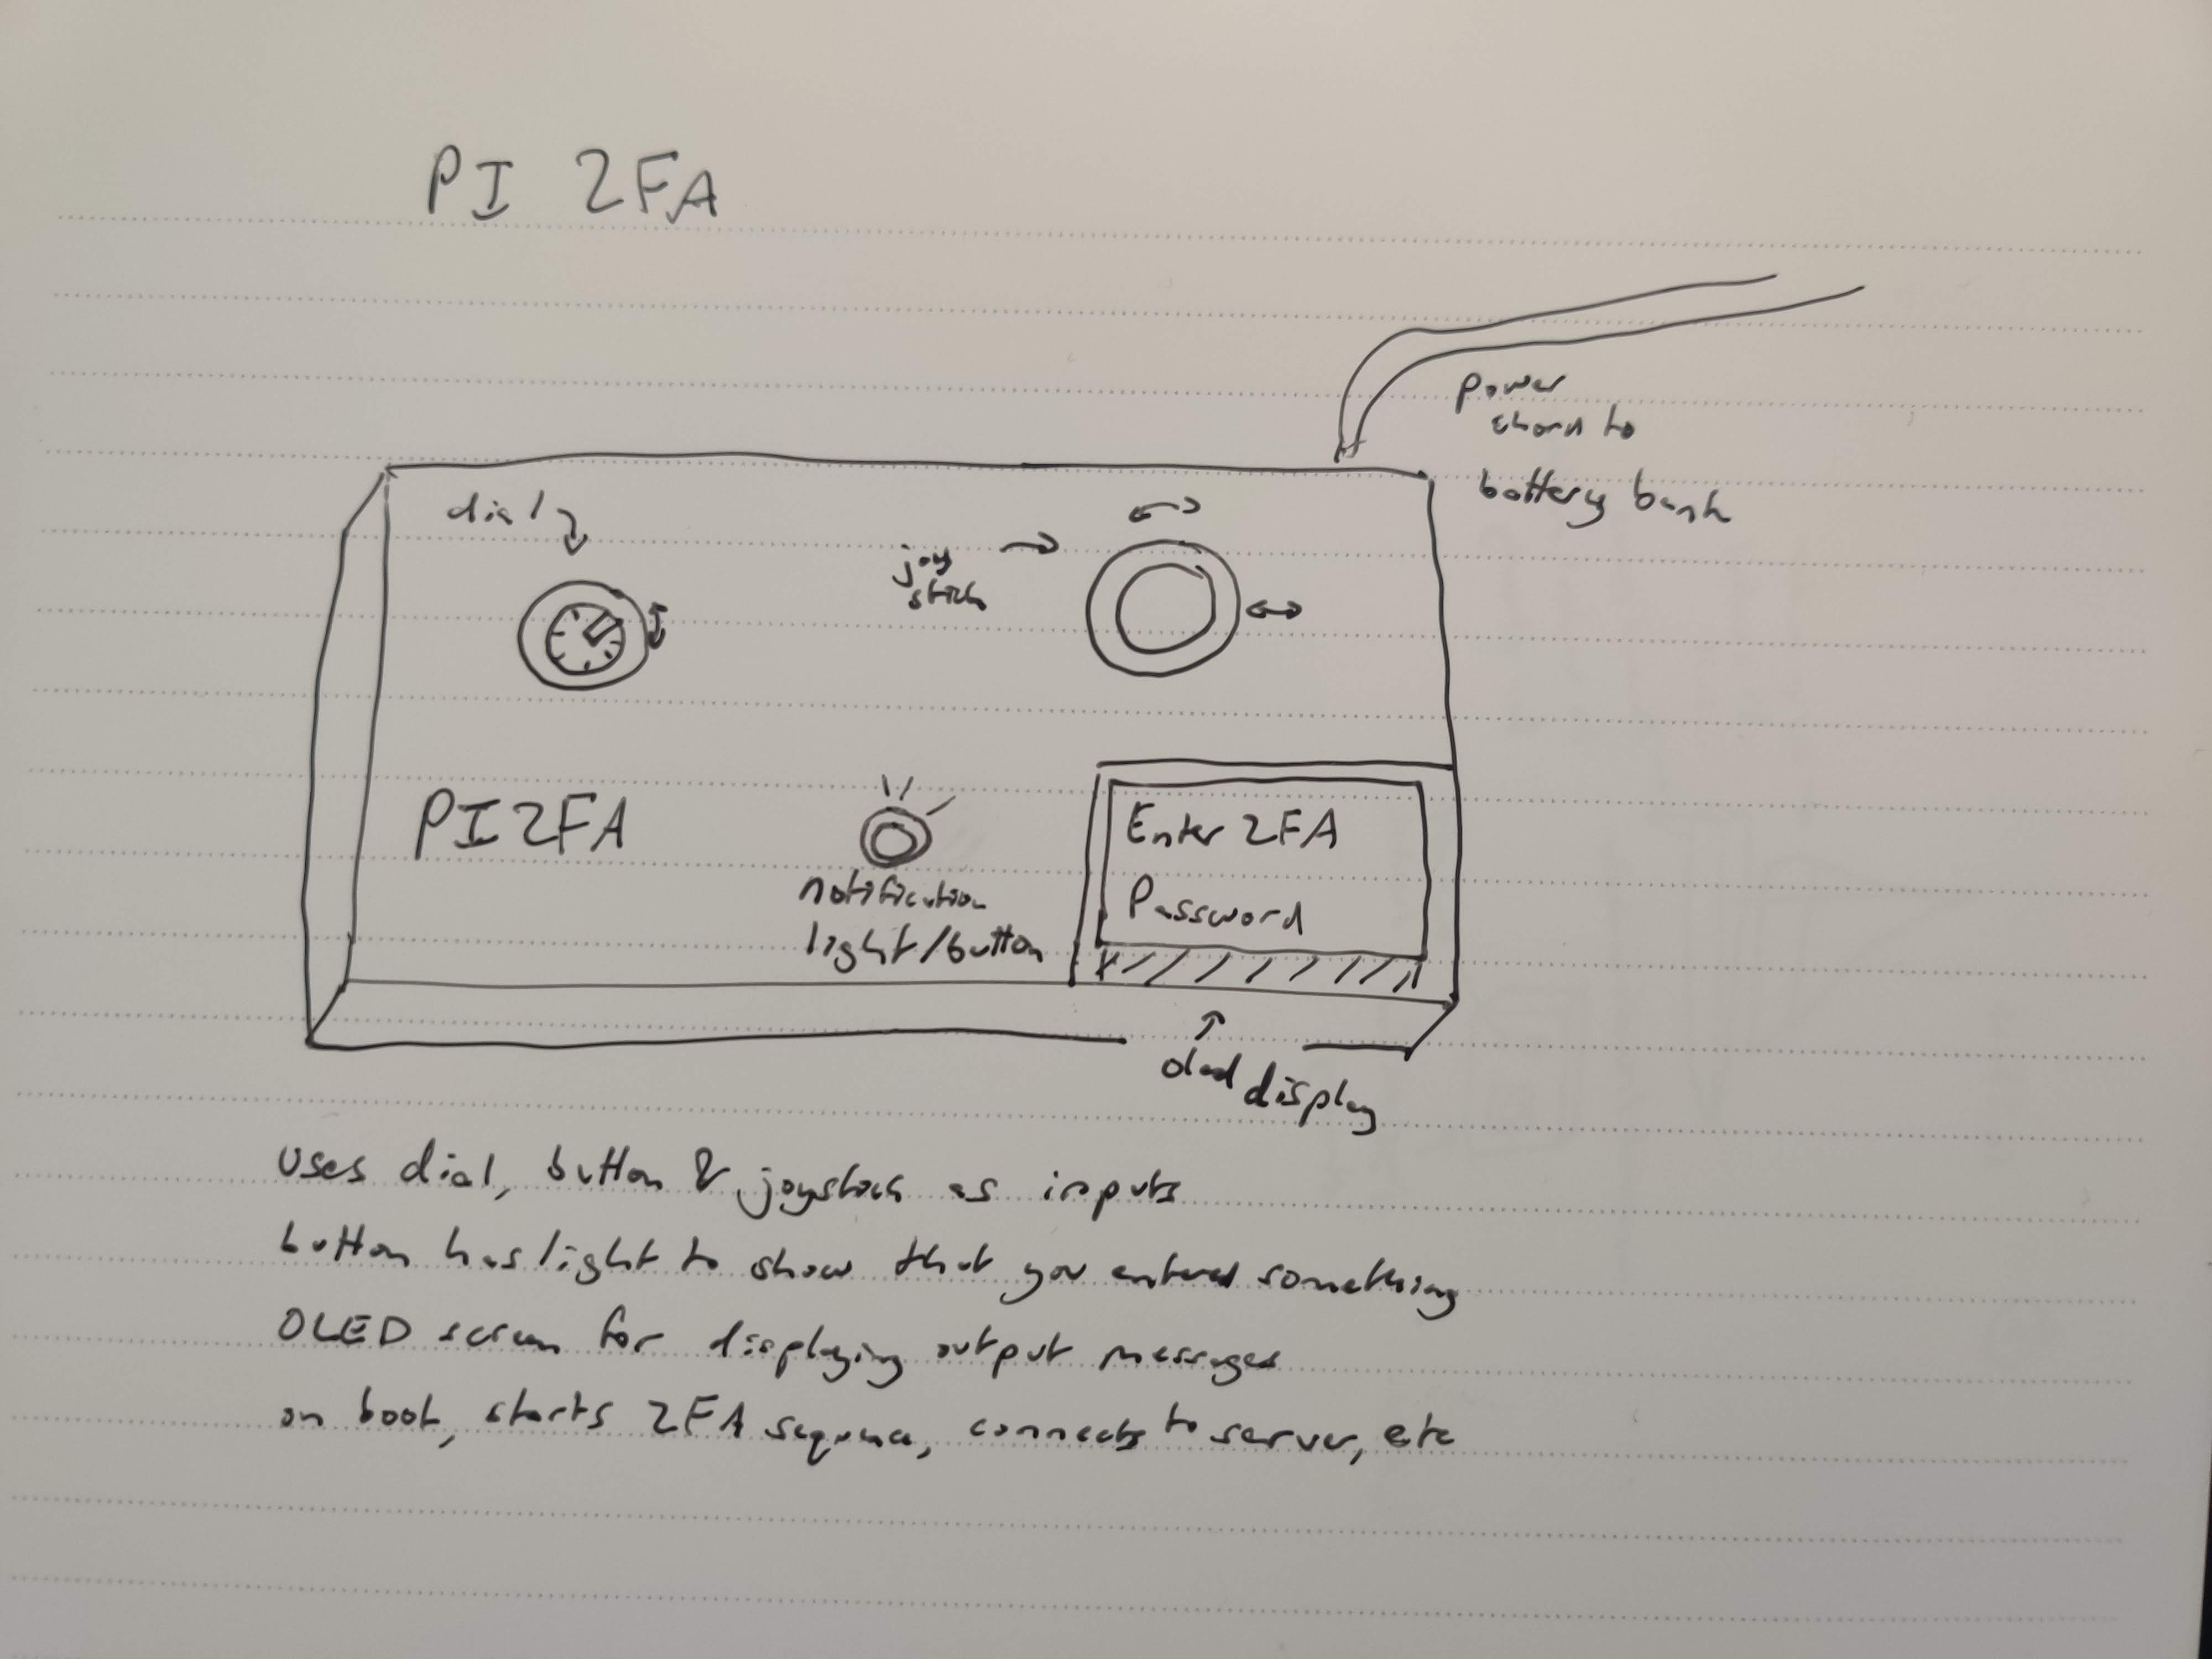 PI 2FA
power
chord to
battery bank
dial
joy
stick
PI 2FA
notification
light/button
Enter 2FA
Password
oled display
uses dial, button & joystick as inputs
button has light to show that you entered something
OLED screen for displaying output messages
on boot, starts 2FA sequence, connects to server, etc